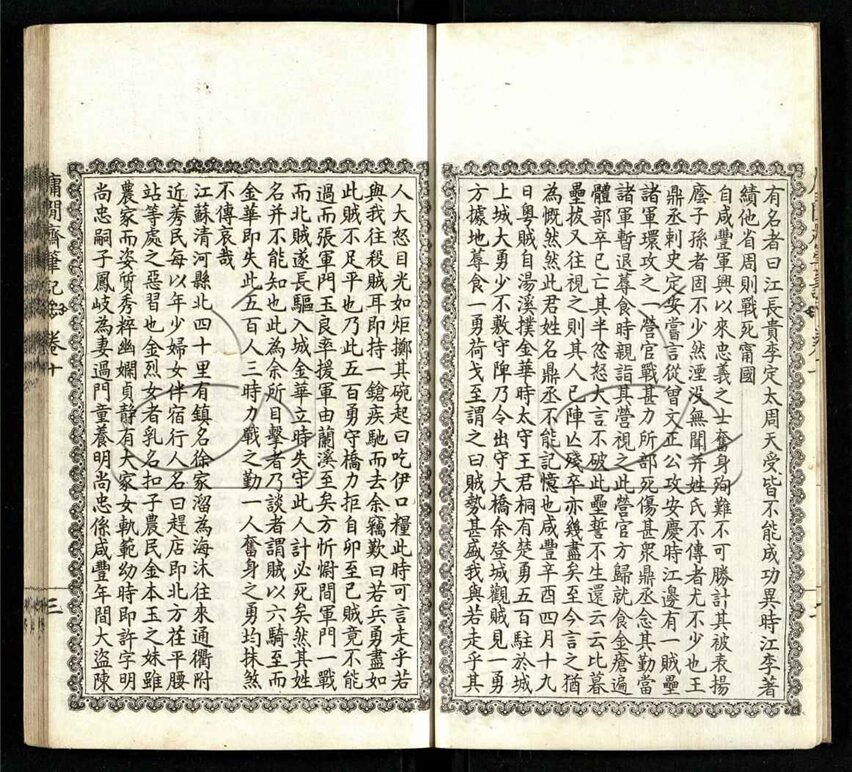 有名者曰江長貴李定太周天受皆不能成功異時江李著
績他省周則戰死甯國
自咸豐軍興以來忠義之士奮身殉難不可勝計其被表揚
廕子孫者固不少然湮没無聞并姓氏不傳者尤不少也王
鼎丞刺史定安嘗言從曾文正公攻安慶時江邊有一賊壘
諸軍環攻之一營官戰甚力所部死傷甚衆鼎丞念其勤當
諸軍暫退蓐食時親詣其營視之此營官方歸就食金瘡遍
體部卒已亡其半忿怒大言不破此壘誓不生還云云比暮
壘拔又往視之則其人已陣亾殘卒亦幾盡矣至今言之猶
為慨然然此君姓名鼎丞不能記憶也咸豐辛酉四月十九
日粤賊自湯溪撲金華時太守王君桐有楚勇五百駐於城
上城大勇少不敷守陴乃令出守大橋余登城觀賊見一勇
方據地蓐食一勇荷戈至謂之曰賊勢甚盛我與若走乎其
人大怒目光如炬擲其碗起曰吃伊口糧此時可言走乎若
與我往殺賊耳即持一鎗疾馳而去余竊歎曰若兵勇盡如
此賊不足平也乃此五百勇守橋力拒自卯至巳賊竟不能
過而張軍門玉良率援軍由蘭溪至矣方忻慰間軍門一戰
而北賊遂長驅入城金華立時失守此人計必死矣然其姓
名并不能知也此為余所目擊者乃談者謂賊以六騎至而
金華即失此五百人三時力戰之勤一人奮身之勇均抹煞
不傳哀哉
江蘇清河縣北四十里有鎮名徐家溜為海沭往來通衢附
近莠民每以年少婦女伴宿行人名曰趕店即北方茌平腰
站等處之惡習也金烈女者乳名扣子農民金本玉之妹雖
農家而姿質秀粹幽嫻貞靜有大家女軌範幼時即許字明
尚忠嗣子鳳岐為妻過門童養明尚忠係咸豐年間大盗陳
庸閒齋筆記
卷十
三